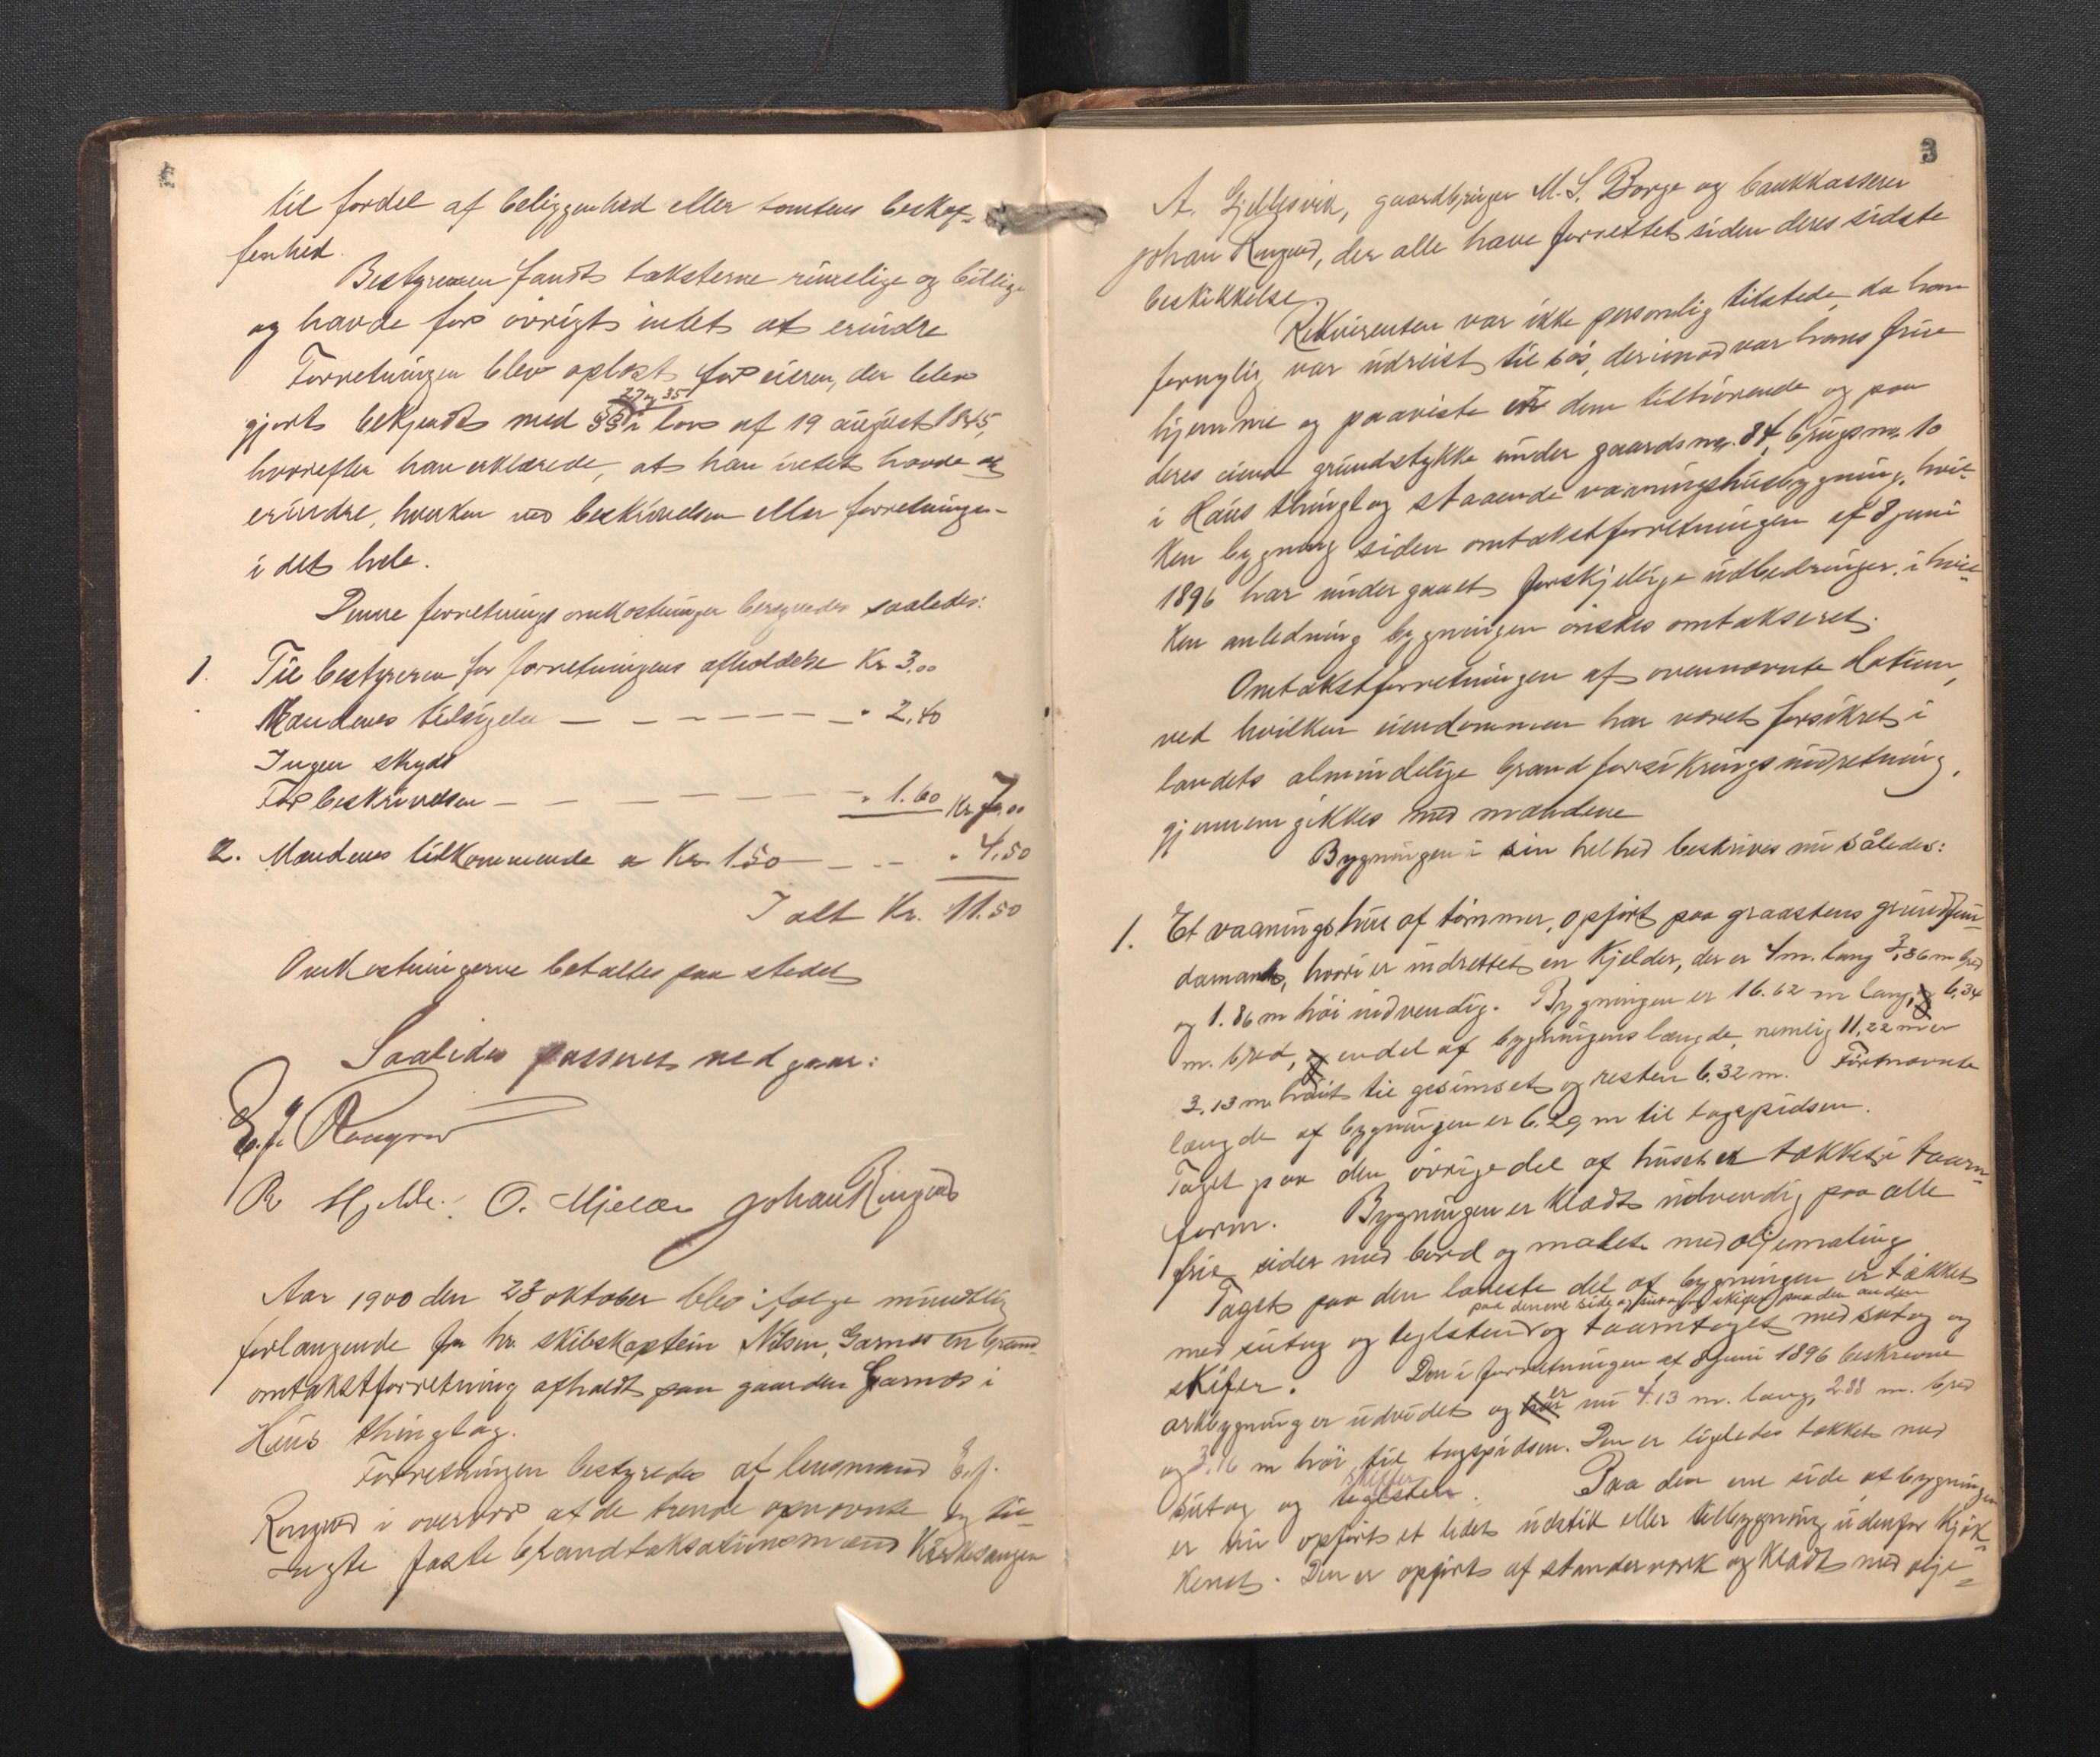 til fordel af beliggenhed eller tomtens beskaf-
fenhed.
Bestyreren fandt taksterne rimelige og billige
og havde for øvrigt intet at erindre
Forretningen blev oplæst for eieren, der blev
27 og 35
gjort bekjendt med §§ i lov af 19 august 1845,
hvorefter han erklærede, at han intet havde at
erindre, hverken ved beskrivelsen eller forretningen
i det hele.
Denne forretnings omkostninger beregnedes saaledes:
1. Til bestyreren for forretningens afholdelse Kr 3.00
Mændenes tilsigelse — — — — — " 2.40
Ingen skyds
For beskrivelsen — — — — — " 1.60 Kr 7.00
2. Mændenes tilkommende a Kr. 1.50 — — " 4.50
I alt Kr. 11.50
Omkostningerne betaltes paa stedet
Saaledes passeret vedgaar:
E. J.
R Hjelde. O. Mjelde Johan Ringud
Aar 1900 den 23 oktober blev ifølge mundtlig
forlangende fra hr. skibskaptein Nilsen, Garnæs en brand-
omtakstforretning afholdt paa gaarden Garnæs i
Haus thinglag.
Forretningen bestyredes af lensmand E. J.
i overvær af de trende opnævnte og til-
faste brandtaksationsmænd Kirkesanger
3
A. Gjellesvik, gaardbruger M. S. Borge og bankkasserer
Johan Ringud, der alle have forrettet siden deres sidste
beskikkelse.
Rekvirenten var ikke personlig tilstede, da han
fornylig var udreist til søs, derimod var hans frue
hjemme og paaviste et dem tilhørende og paa
deres eiende grundstykke under gaardsnr. 84, brugsnr. 10
i Haus thinglag staaende vaaningshusbygning, hvil-
ken bygning siden omtakstforretningen af 8 juni
1896 har undergaaet forskjelige udbedringer, i hvil-
ken anledning bygningen ønskes omtakseret.
Omtakstforretningen af ovennævnte datum,
ved hvilken eiendommen har været forsikret i
landets almindelige brandforsikringsindretning,
gjennemgikkes med mændene
Bygningen i sin helhed beskrives nu således:
1. Et vaaningshus af tømmer, opført paa graastens grundfun-
dament, hvori er indrettet en Kjelder, der er 4 m. lang 3,86 m bred
og 1.86 m høi indvendig. Bygningen er 16.62 m lang, 6,34
m. bred, endel af bygningens længde, nemlig 11,22 m er
3.13 m høit til gesimset og resten 6.32 m. Førstnævnte
længde af bygningen er 6.29 m til tagspidsen.
Taget paa den øvrige del af huset er tækket i taarn-
form. Bygningen er klædt udvendig paa alle
frie sider med bord og malet med oljemaling
Taget paa den laveste del af bygningen er tækket
paa den ene side og sutag og skifer paa den anden
med sutag og teglsten og taarntaget med sutag og
skifer. Den i forretningen af 8 juni 1896 beskrevne
er
arkbygning er udvidet og nu 4.13 m. lang, 2.88 m. bred
og 3.16 m høi til tagspidsen. Den er ligeledes tækket med
skiffer
sutag og teglsten. Paa den ene side af bygningen
er nu opført et lidet udstik eller tilbygning udenfor kjøk-
kenet. Den er opført af stenderværk og klædt med olje-